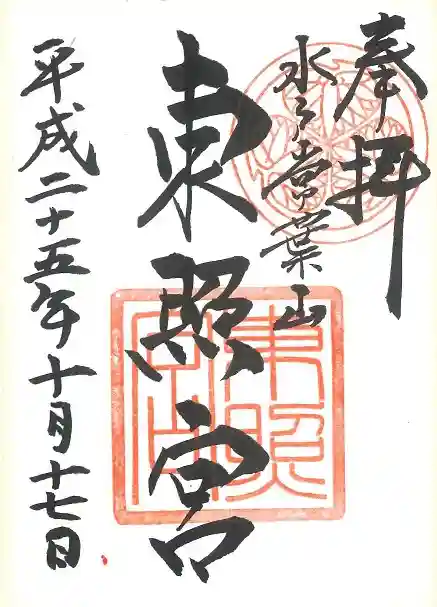 奉拝
水戸常葉山
東照宮
平成二十五年十月十七日
東照